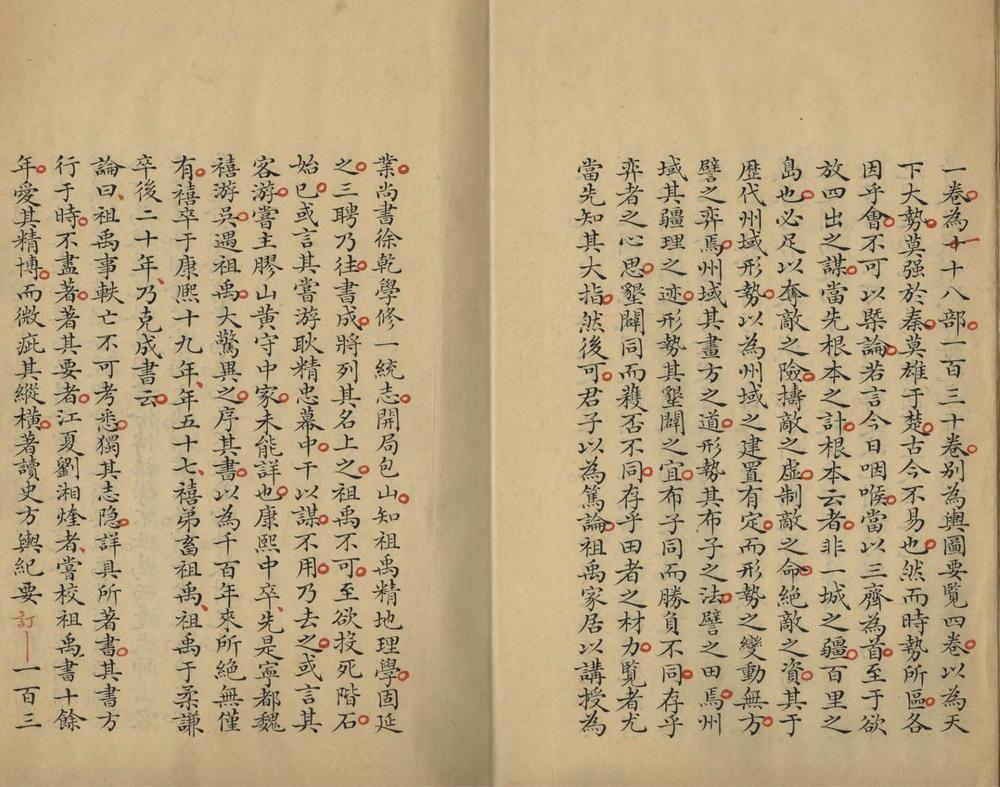 一卷為十十八部一百三十卷别為輿圖要覧四卷以為天
下大勢莫强於秦莫雄于楚古今不易也然而時勢所區各
因乎會不可以槩論若言今日咽喉當以三齊為首至于欲
放四出之謀當先根本之計根本云者非一城之疆百里之
島也必足以奪敵之險擣敵之虚制敵之命絶敵之資其于
歴代州域形勢以為州域之建置有定而形勢之變動無方
譬之弈焉州域其畫方之道形勢其布子之法譬之田焉州
域其疆理之迹形勢其墾闢之宜布子同而勝負不同存乎
弈者之心思墾闢同而穫否不同存乎田者之材力覧者尤
當先知其大指然後可君子以為篤論祖禹家居以講授為
業尚書徐乾學修一統志開局包山知祖禹精地理學固延
之三聘乃往書成將列其名上之祖禹不可至欲投死階石
始已或言其嘗游耿精忠幕中干以謀不用乃去之或言其
客游嘗主膠山黄守中家未能詳也康熙中卒先是寧都魏
禧游吳遇祖禹大驚異之序其書以為千百年來所絶無僅
有禧卒于康熙十九年年五十七禧弟畜祖禹祖禹于柔謙
卒後二十年乃克成書云
論曰祖禹事軼亡不可考悉獨其志隐詳具所著書其書方
行于時不盡著著其要者江夏劉湘煃者嘗校祖禹書十餘
年愛其精博而微疵其縱横著讀史方輿紀要訂一百三